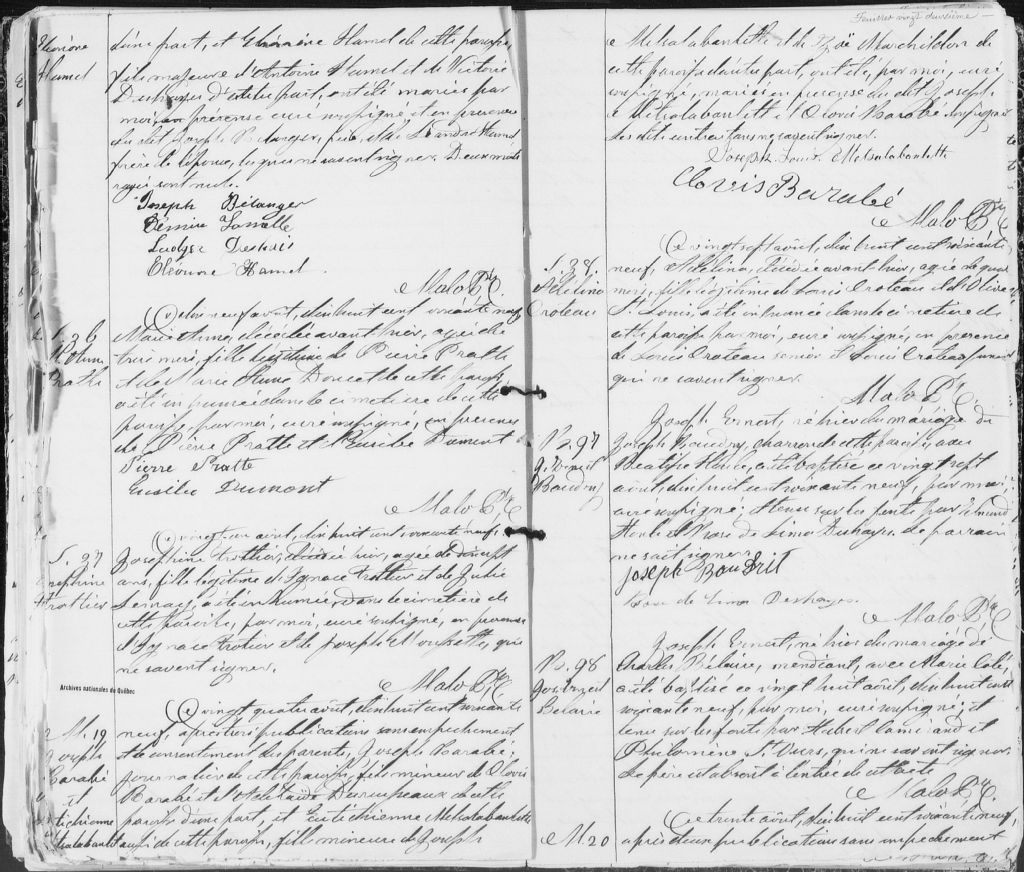 Hamel
d'une part, et Hamel de cette paroisse,
fille majeure d'Antoine Hamel et de Victoire
d'autre part, ont été mariés par
moi, en présence curé soussigné et en présence
du dit Joseph Bélanger, père, et de Léandre Hamel
frère de l'épouse, lesquels ne savent signer. Deux mots
rayés sont nuls.
Joseph Bélanger
Ludger
Eléonore Hamel
Malo Ptre
S. 26
Anna
Pratte
Le dix neuf août, dix huit cent soixante neuf
Marie Anna, décédée avant hier, agée de
trois mois, fille légitime de Pierre Pratte
et de Marie Anne Doucet de cette paroisse,
a été inhumée dans le cimetière de cette
paroisse, par moi, curé soussigné, en présence
de Pierre Pratte et d'Eusèbe Dumont
Pierre Pratte
Eusèbe Dumont
Malo Ptre
S. 27
Josephine
Trottier
Le vingt un août, dix huit cent soixante neuf,
Josephine Trottier, décédée hier, agée de
ans, fille légitime d'Ignace Trottier et de Julie
a été inhumée, dans le cimetière de
cette paroisse, par moi, curé soussigné, en présence
d'Ignace Trottier et de Joseph qui
ne savent signer.
Malo Ptre
Archives nationales du Québec
M. 19
Joseph
Barabé
et
Eutichienne
Metsalabanlette
Le vingt quatre août, dix huit cent soixante
neuf, après trois publications sans empêchement
et du consentement des parents, Joseph Barabé,
journalier de cette paroisse, fils mineur de Clovis
Barabé et d'Adelaïde de cette
paroisse d'une part, et Eutichienne Metsalabanlette
aussi de cette paroisse, fille mineure de Joseph
Feuillet vingt deuxième
Metsalabanlette et de Zoë Marchildon de
cette paroisse d'autre part, ont été, par moi, curé
soussigné, mariés en présence du dit Joseph
Metsalabanlette et Clovis Barabé soussignés
Les dits contractants ne savent signer.
Joseph Louis Metsalabanlette
Clovis Barabé
Malo Ptre
S. 28.
Adélina
Croteau
Le vingt sept août, dix huit cent soixante
neuf, Adélina, décédée avant hier, agée de quatre
mois, fille légitime de Louis Croteau et d'Olive
St. Louis, a été inhumée dans le cimetière de
cette paroisse par moi, curé soussigné, en présence
de Louis Croteau senior et Louis Croteau junior
qui ne savent signer.
Malo Ptre
B. 97
J. Ernest
Baudry
Joseph Ernest, né hier du mariage de
Joseph Baudry, charron de cette paroisse, avec
Béatrice Houle, a été baptisé ce vingt sept
août, dix huit cent soixante neuf, par moi
curé soussigné; et tenu sur les fonts par Edmund
Houle et Rose de Lima Deshayes. Le parrain
ne sait signer.
Joseph Boudrit
Rose de Lima Deshayes
Malo Ptre
B. 98
Jos. Ernest
Belaire
Joseph Ernest, né hier du mariage de
Charles Belaire, mendiant, avec Marie Côté,
a été baptisé ce vingt huit août, dix huit cent
soixante neuf, par moi, curé soussigné; et
tenu sur les fonts par Hubert et
Philomène qui ne savent signer.
Le père est absent à l'entrée de cet acte
Malo Ptre
M. 20
Le trente août, dix huit cent soixante neuf,
après deux publications sans empêchement